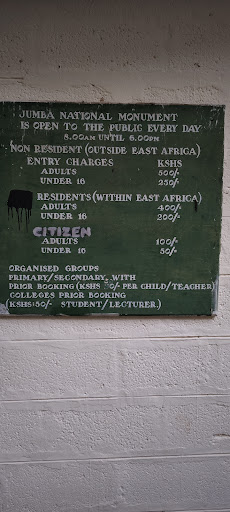 JUMBA NATIONAL MONUMENT
IS OPEN TO THE PUBLIC EVERY DAY
8.00AM UNTIL 6.00PM
NON RESIDENT (OUTSIDE EAST AFRICA)
ENTRY CHARGES KSHS
ADULTS 500/-
UNDER 16 250/-
RESIDENTS (WITHIN EAST AFRICA)
ADULTS 400/-
UNDER 16 200/-
CITIZEN
ADULTS 100/-
UNDER 16 50/-
ORGANISED GROUPS
PRIMARY/SECONDARY, WITH
PRIOR BOOKING (KSHS /- PER CHILD/TEACHER)
COLLEGES PRIOR BOOKING
(KSHS:50/- STUDENT/LECTURER.)